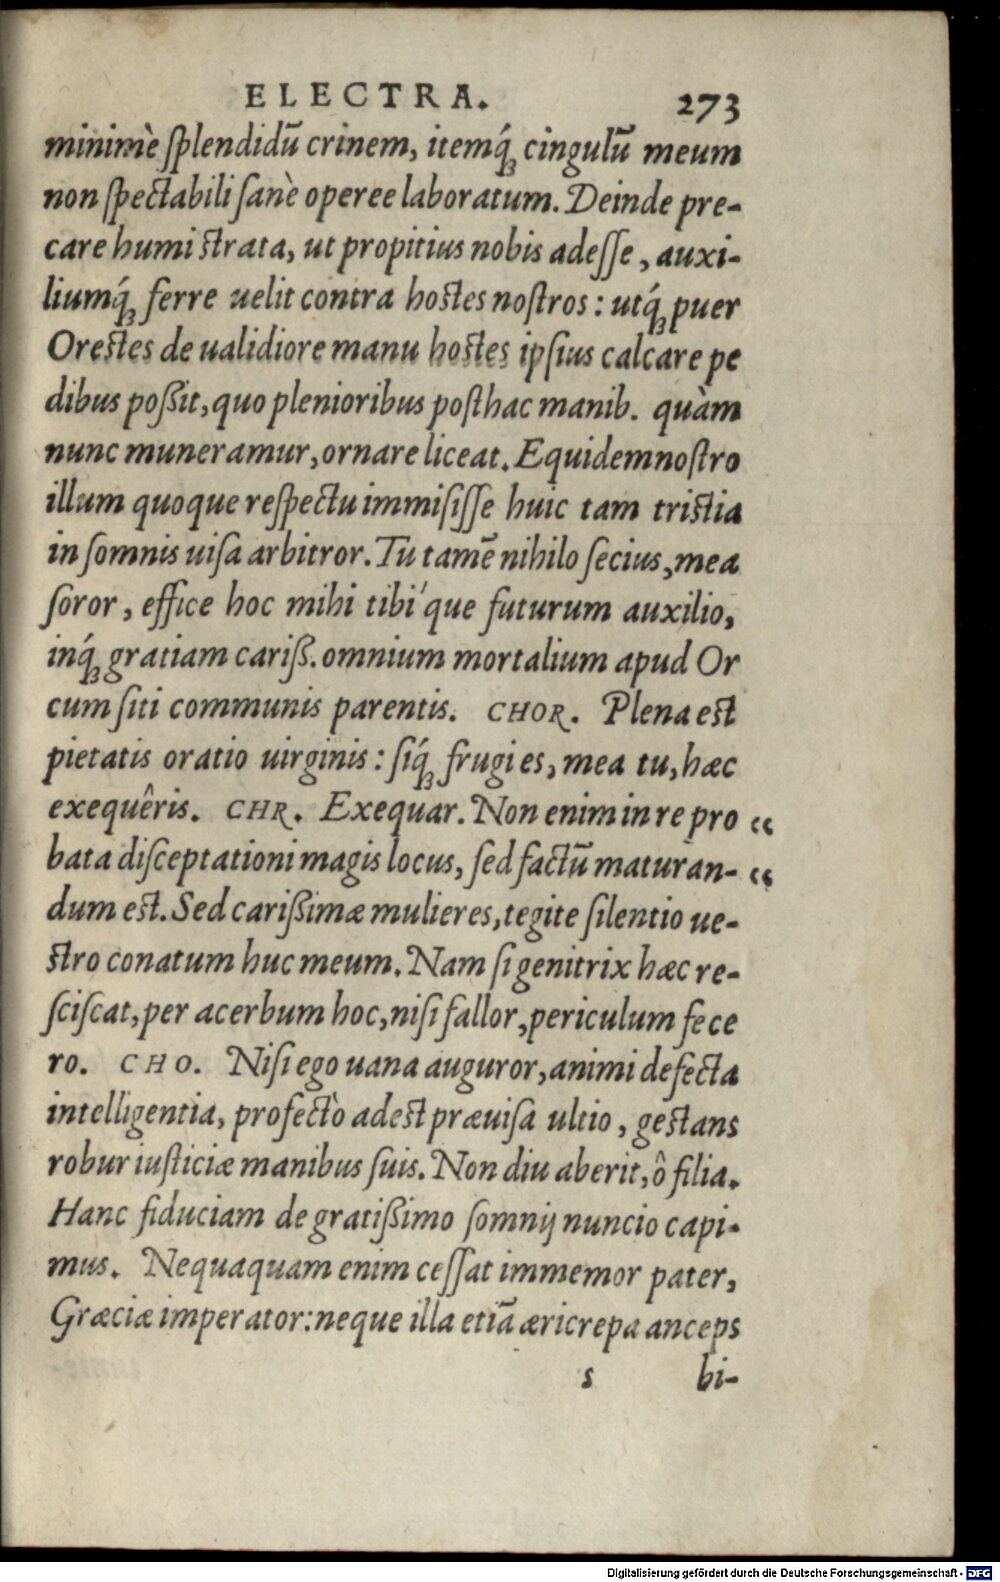 ELECTRA. 273
minimè ſplendidũ crinem, itemq́; cingulũ meum
non ſpectabili ſanè operee laboratum. Deinde pre-
care humi ſtrata, ut propitius nobis adeſſe, auxi-
liumq́; ferre uelit contra hoſtes noſtros: utq́; puer
Oreſtes de ualidiore manu hoſtes ipſius calcare pe
dibus poßit, quo plenioribus poſthac manib. quàm
nunc muneramur, ornare liceat. Equidem noſtro
illum quoque reſpectu immiſiſſe huic tam triſtia
in ſomnis uiſa arbitror. Tu tamẽ nihilo ſecius, mea
ſoror, effice hoc mihi tibi´que futurum auxilio,
inq́; gratiam cariß. omnium mortalium apud Or
cum ſiti communis parentis. CHOR. Plena eſt
pietatis oratio uirginis: ſiq́; frugi es, mea tu, hæc
exequêris. CHR. Exequar. Non enim in re pro “
bata diſceptationi magis locus, ſed factũ maturan- “
dum eſt. Sed carißimæ mulieres, tegite ſilentio ue-
ſtro conatum huc meum. Nam ſi genitrix hæc re-
ſciſcat, per acerbum hoc, niſi fallor, periculum fece
ro. CHO. Niſi ego uana auguror, animi defecta
intelligentia, profectò adeſt præuiſa ultio, geſtans
robur iuſticiæ manibus ſuis. Non diu aberit, ô filia.
Hanc fiduciam de gratißimo ſomnij nuncio capi-
mus. Nequaquam enim ceſſat immemor pater,
Græciæ imperator: neque illa etiã æricrepa anceps
s bi-
Digitalisierung gefördert durch die Deutsche Forschungsgemeinschaft - DFG